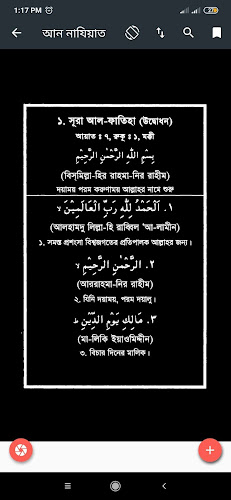 1:17 PM
আন নাযিয়াত
১. সূরা আল-ফাতিহা (উদ্বোধন)
আয়াত : ৭, রুকু : ১, মক্কী
بِسْمِ اللّٰهِ الرَّحْمٰنِ الرَّحِيْمِ
(বিস্‌মিল্লা-হির রাহমা-নির রাহীম)
দয়াময় পরম করুণাময় আল্লাহর নামে শুরু
١. اَلْحَمْدُ لِلّٰهِ رَبِّ الْعَالَمِيْنَ ۙ
(আলহামদু লিল্লা-হি রাব্বিল 'আ-লামীন)
১. সমস্ত প্রশংসা বিশ্বজগতের প্রতিপালক আল্লাহর জন্য।
٢. الرَّحْمٰنِ الرَّحِيْمِ ۙ
(আররাহমা-নির রাহীম)
২. যিনি দয়াময়, পরম দয়ালু।
٣. مَالِكِ يَوْمِ الدِّيْنِ ؕ
(মা-লিকি ইয়াওমিদ্দীন)
৩. বিচার দিনের মালিক।